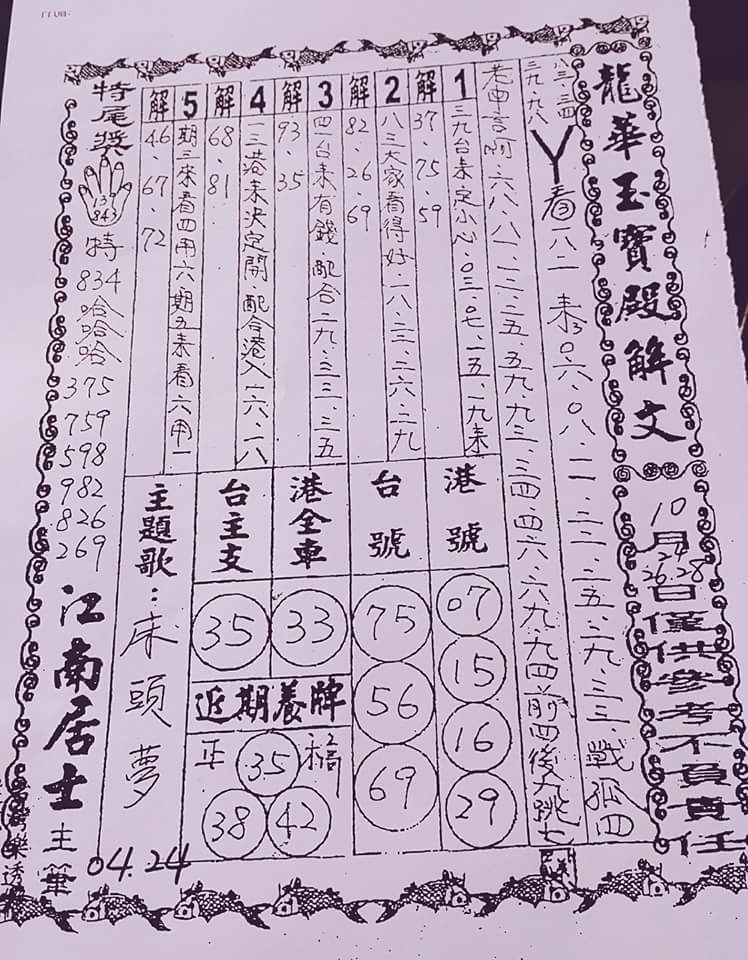 龍華玉寶殿解文
10月
24
26.28
日僅供參考不負責任
八三.三四
三九.九八
丫看一八二 耒30.六.0八.二一.二二.二五.二九.三三.戰孤四
六八.八一.一二.三五.五九.九三.三四.四六.六九.九四前四後九跳七
1
三九台耒定小心.0三.0七.一五.一九耒
解
37.75.59
2
八三大家看得好.一八.二三.二六.二九
解
82.26.69
3
四一台耒有錢.配合二九.三三.三五
解
93.35
4
三港耒決定開.配合港入一六.一八
解
68.81
5
期三來看四用六.期五耒看六用一
解
46.67.72
港號
07
15
16
29
台號
75
56
69
港全車
33
台主支
35
近期養牌
正
35
38
42
主題歌:床頭夢
特尾獎
137
843
特
834
哈哈哈
375
759
598
982
826
269
江南居士主筆
04.24
樂透